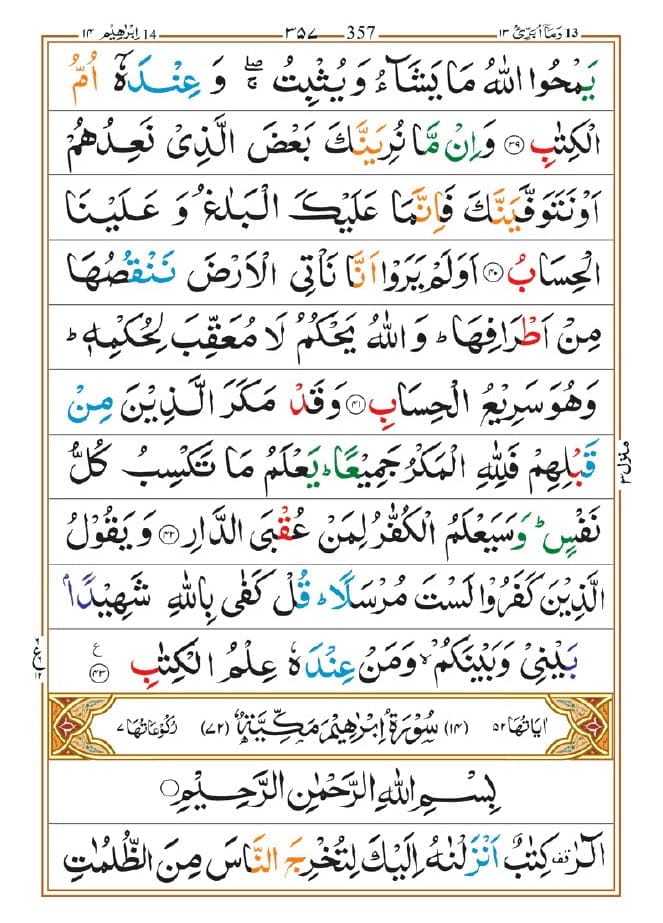 13 وَمَآ اُبَرِّئُ ١٣ 357 ٣٥٧ 14 اِبْرٰهِيْم ١٤
يَمْحُوا اللّٰهُ مَا يَشَآءُ وَيُثْبِتُ ۖۚ وَ عِنْدَهٗۤ اُمُّ
الْكِتٰبِ ﴿٣٩﴾ وَاِنْ مَّا نُرِيَنَّكَ بَعْضَ الَّذِيْ نَعِدُهُمْ
اَوْ نَتَوَفَّيَنَّكَ فَاِنَّمَا عَلَيْكَ الْبَلٰغُ وَ عَلَيْنَا
الْحِسَابُ ﴿٤٠﴾ اَوَلَمْ يَرَوْا اَنَّا نَاْتِي الْاَرْضَ نَنْقُصُهَا
مِنْ اَطْرَافِهَا ؕ وَ اللّٰهُ يَحْكُمُ لَا مُعَقِّبَ لِحُكْمِهٖ ؕ
وَهُوَ سَرِيْعُ الْحِسَابِ ﴿٤١﴾ وَقَدْ مَكَرَ الَّذِيْنَ مِنْ
قَبْلِهِمْ فَلِلّٰهِ الْمَكْرُ جَمِيْعًا ؕ يَعْلَمُ مَا تَكْسِبُ كُلُّ
نَفْسٍ ؕ وَسَيَعْلَمُ الْكُفّٰرُ لِمَنْ عُقْبَى الدَّارِ ﴿٤٢﴾ وَ يَقُوْلُ
الَّذِيْنَ كَفَرُوْا لَسْتَ مُرْسَلًا ؕ قُلْ كَفٰى بِاللّٰهِ شَهِيْدًۢا
بَيْنِيْ وَبَيْنَكُمْ ۙ وَمَنْ عِنْدَهٗ عِلْمُ الْكِتٰبِ ﴿٤٣﴾ ع
منزل ٣
اٰيَاتُهَا ٥٢ (١٤) سُوْرَةُ اِبْرٰهِيْمَ مَكِّيَّةٌ (٧٢) رُكُوْعَاتُهَا ٧
بِسْمِ اللّٰهِ الرَّحْمٰنِ الرَّحِيْمِ
الٓرٰ ۟ كِتٰبٌ اَنْزَلْنٰهُ اِلَيْكَ لِتُخْرِجَ النَّاسَ مِنَ الظُّلُمٰتِ